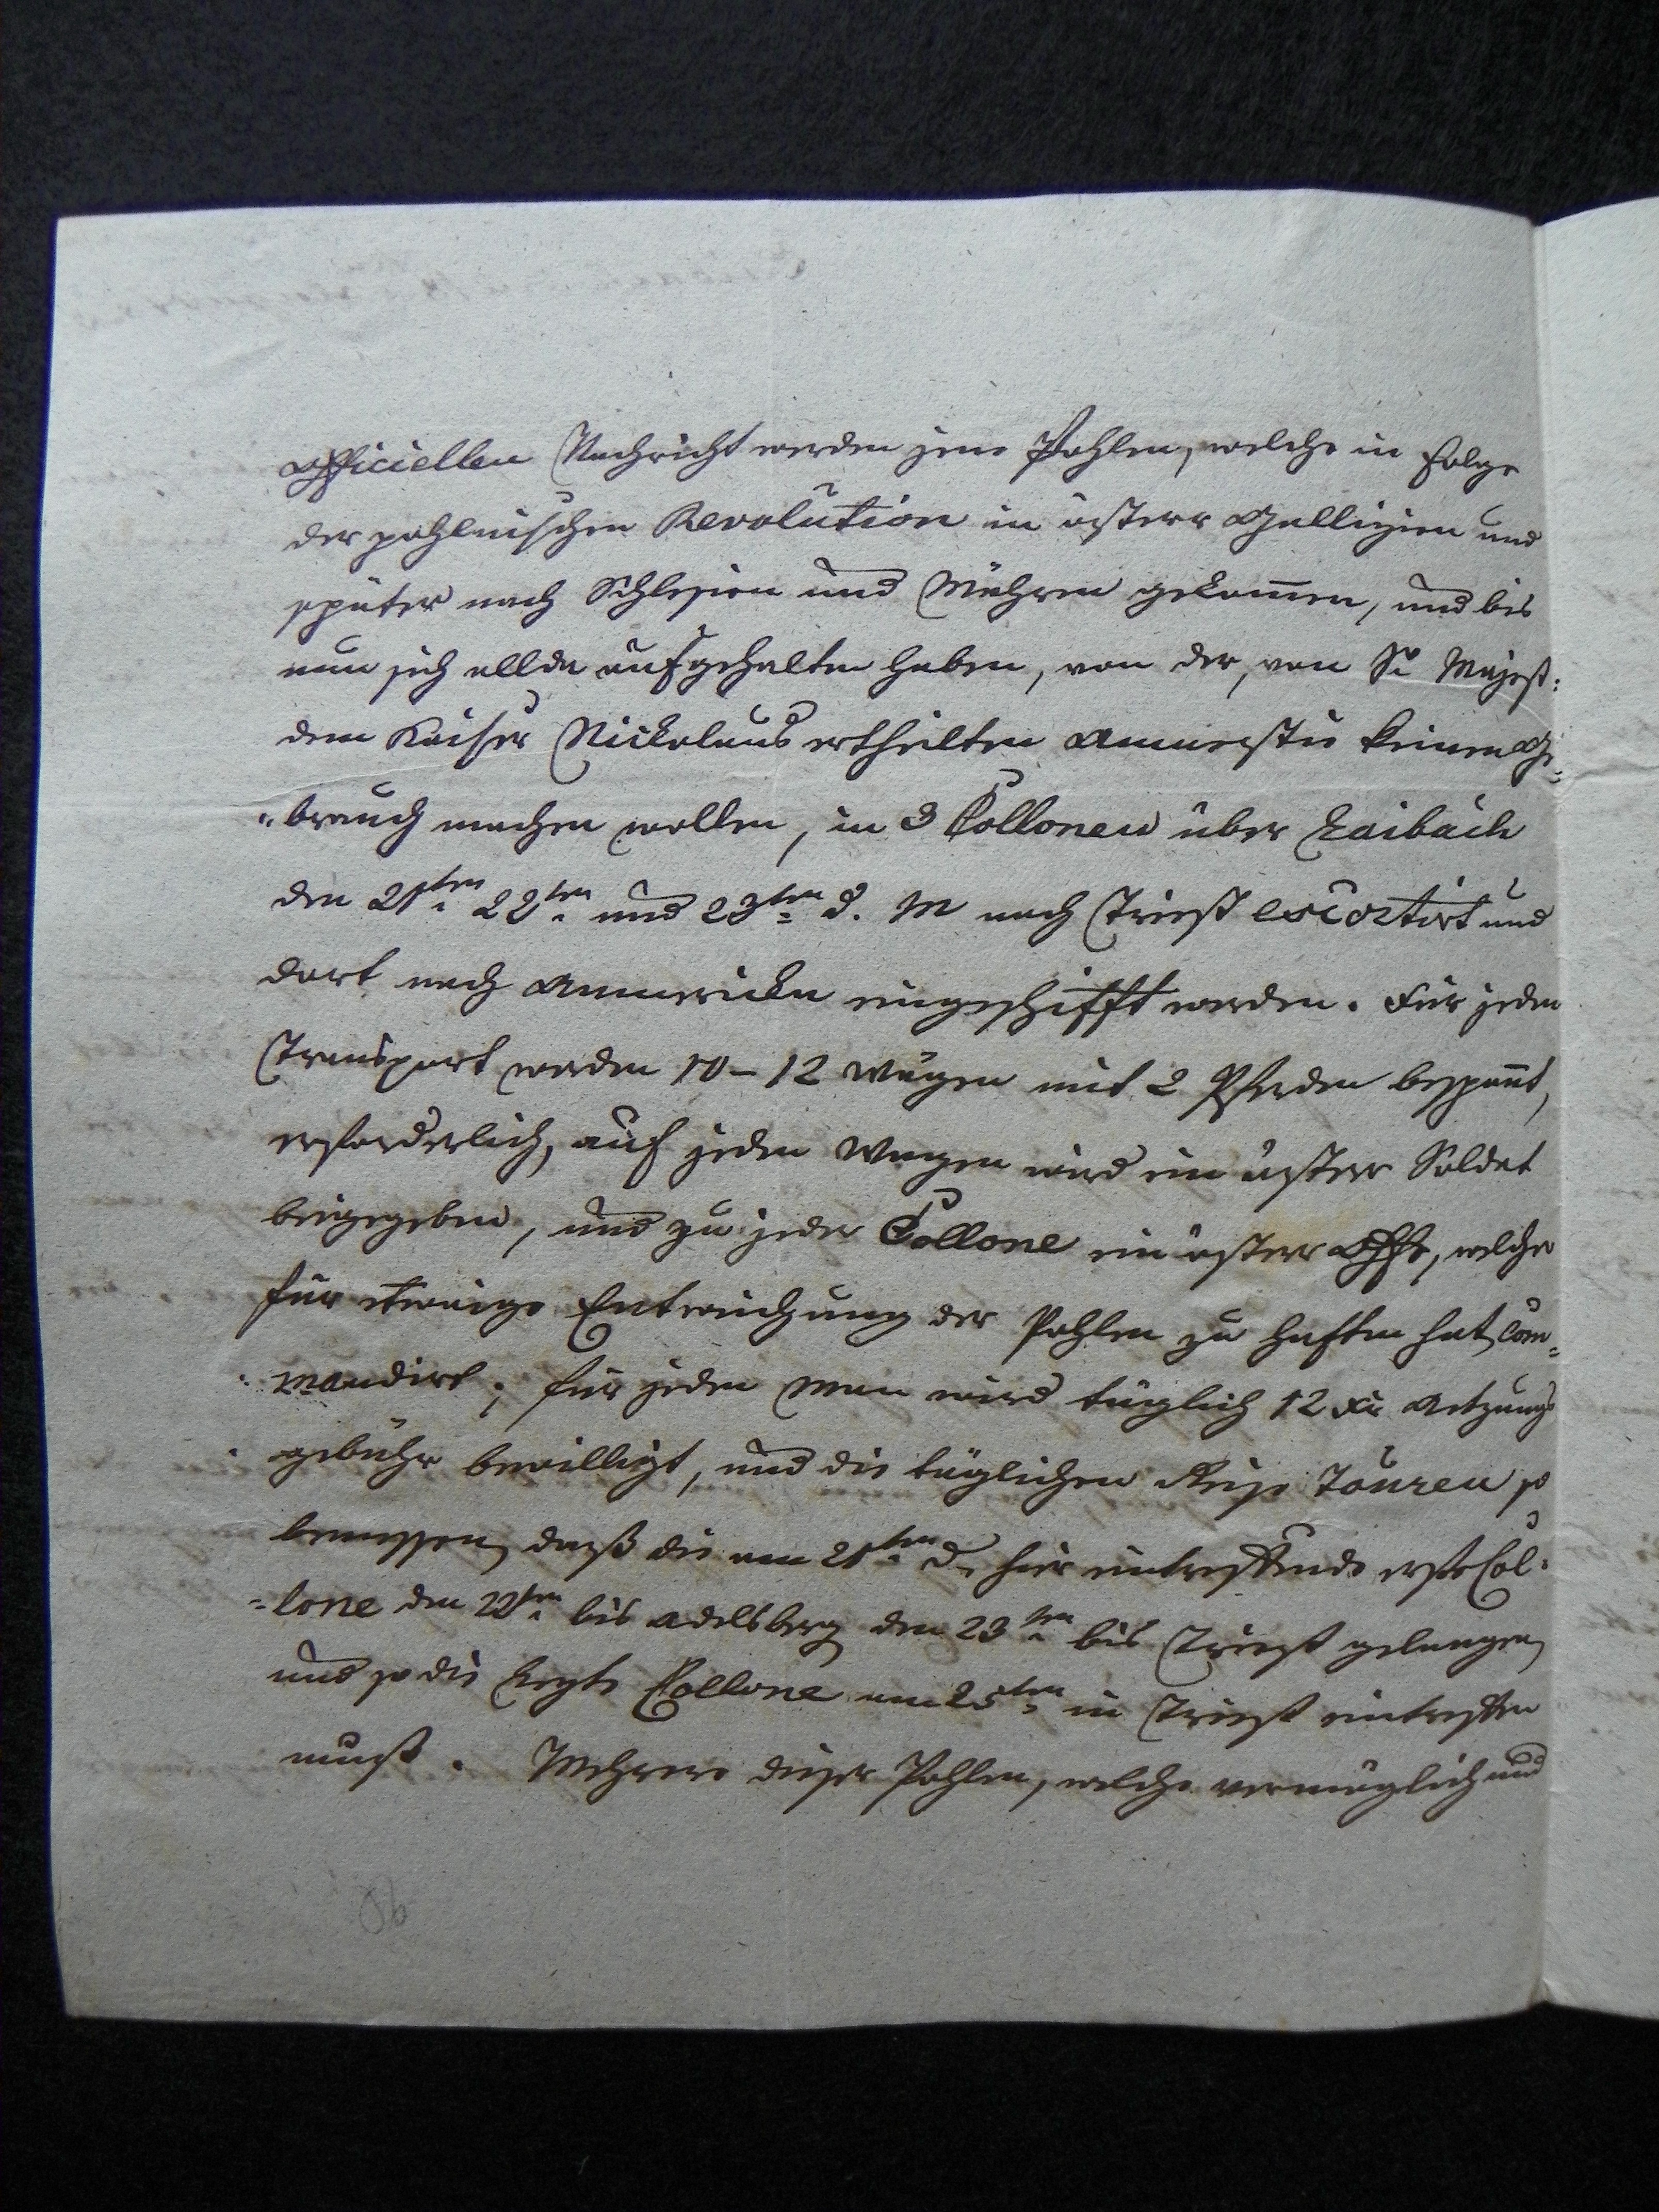 officiellen Nachricht werden jene Pohlen, welche in Folge
der pohlnischen Revolution in österr Gallizien und
später nach Schlesien und Mähren gekom̅en, und bis
nun sich allda aufgehalten haben, von der, von Sr Majest:
dem Kaiser Nickolaus ertheilten Amnestie keinen Ge=
"brauch machen wollen, in 3 Collonen über Laibach
den 21ten 22ten und 23ten d. M nach Triest escortirt und
dort nach Ammericka eingeschifft werden. Für jeden
Transport werden 10–12 Wägen mit 2 Pferden bespan̅t,
erforderlich, auf jeden Wagen wird ein österr Soldat
beigegeben, und zu jeder Collone ein österr Offr, welcher
für etwaige Entweichung der Pohlen zu haften hat, com=
"mandirt; für jeden Man wird täglich 12 xr Aetzungs
gebühr bewilligt, und die täglichen Reise Touren so
bemessen, daß die am 21ten d. hier eintreffende erste Col=
=lone den 22ten bis Adelsberg den 23ten bis Triest gelangen,
und so die letzte Collone am 25ten in Triest eintreffen
muß. Mehrere dieser Pohlen, welche vermöglich und